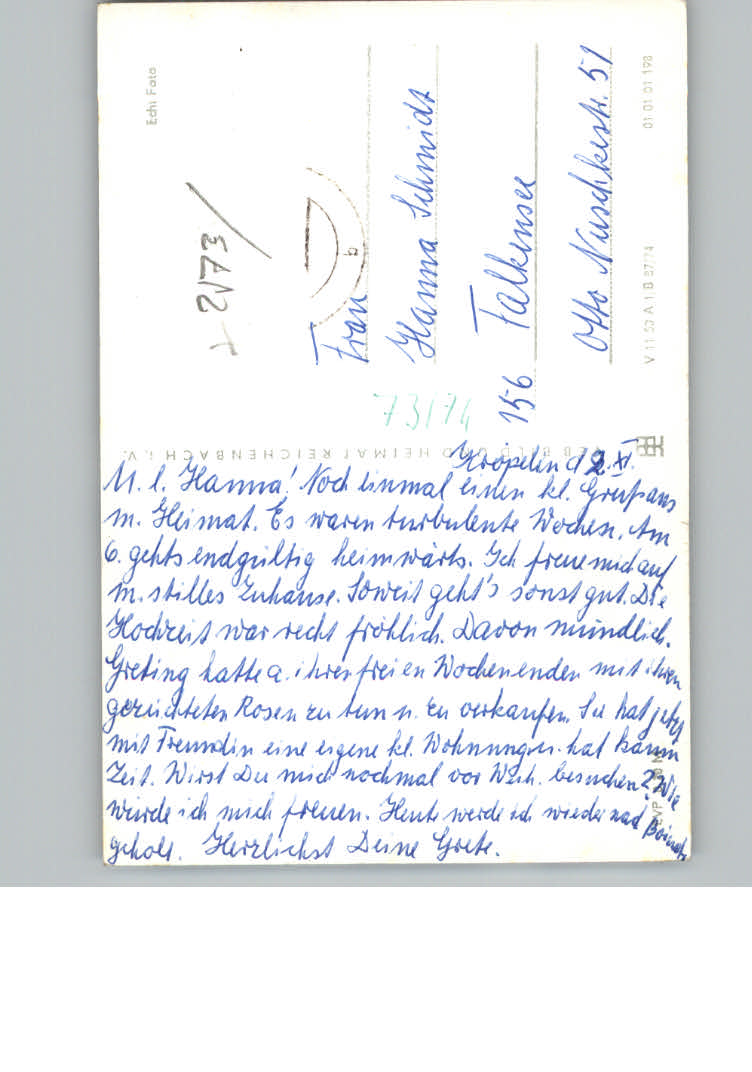 Kröpelin d 2. XI.
M. l. Hanna! Noch einmal einen kl. Gruß aus
m. Heimat. Es waren turbulente Wochen. Am
6. gehts endgültig heimwärts. Ich freue mich auf
m. stilles Zuhause. Soweit geht's sonst gut. Die
Hochzeit war recht fröhlich. Davon mündlich.
Greting hatte a. ihren freien Wochenenden mit ihren
gezüchteten Rosen zu tun u. zu verkaufen. Sie hat jetzt
mit Freundin eine eigene kl. Wohnung u. hat kaum
Zeit. Wirst Du mich nochmal vor Weih. besuchen? Wie
würde ich mich freuen. Heute werde ich wieder nach
geholt. Herzlichst Deine Grete.
Echt Foto
2173
73/74
b
Frau
Hanna Schmidt
156 Falkensee
Otto Nuschkestr. 51
VEB BILD UND HEIMAT REICHENBACH i. V.
V 11 50 A 1 B 87/74
01 01 01 198